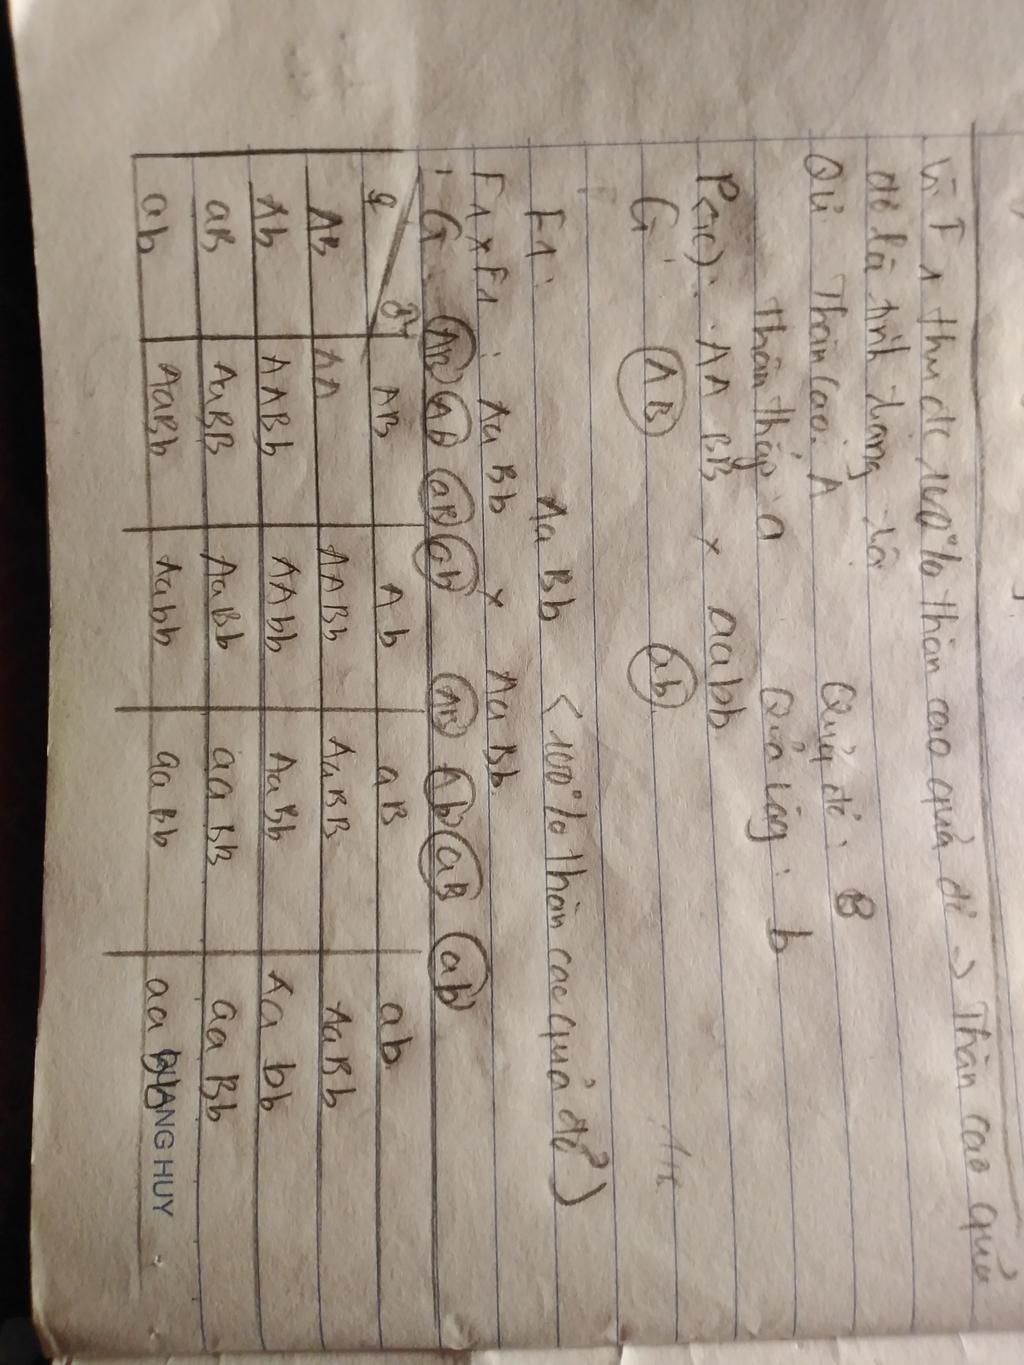 Vì F1 thu đc 100% thân cao quả đỏ → Thân cao quả
đỏ là tính trạng trội
QƯ Thân cao: A Quả đỏ: B
thân thấp: a Quả vàng: b
P(tc): AA BB x aabb
G: AB ab
F1: Aa Bb (100% thân cao quả đỏ)
F1 x F1: Aa Bb x Aa Bb
G: AB Ab aB ab AB Ab aB ab
♀ ♂ AB Ab aB ab
AB AA AABb AaBB AaBb
Ab AABb AAbb AaBb Aa bb
aB AaBB AaBb aaBB aaBb
ab AaBb Aabb aaBb aabb
QUANG HUY